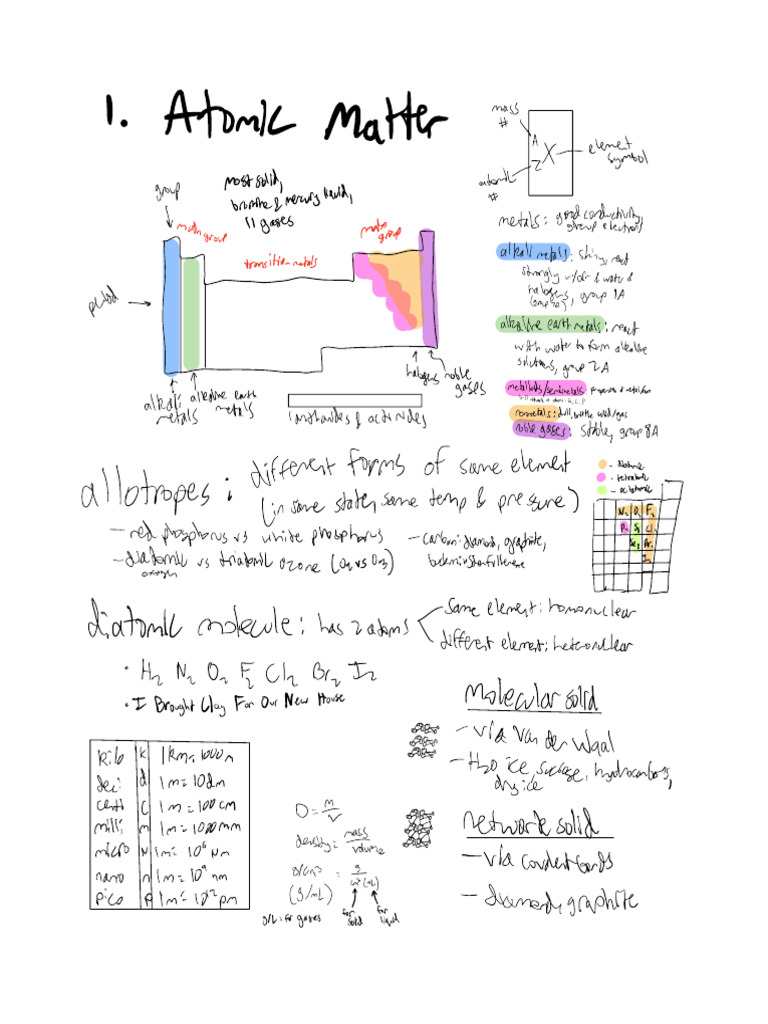 1. Atomic Matter
mass
#
A
Z
X
element
symbol
atomic
#
group
most solid,
bromine & mercury liquid,
11 gases
main group
transition metals
main
group
period
alkali
metals
alkaline earth
metals
halogens
noble
gases
lanthanides & actinides
metals: good conductivity,
give up electrons
alkali metals: shiny, react
strongly w/ air & water &
halogens
group 1A
alkaline earth metals: react
with water to form alkaline
solutions, group 2A
metalloids/semimetals:
nonmetals: dull, brittle solid/gas
noble gases: stable, group 8A
allotropes: different forms of same element
(in same state, same temp & pressure)
- red phosphorus vs white phosphorus
- diatomic vs triatomic ozone (O2 vs O3)
oxygen
- carbon: diamond, graphite,
buckminsterfullerene
- diatomic
- tetratomic
- octatomic
N2 O2 F2
P4 S8 Cl2
Br2
I2
diatomic molecule: has 2 atoms
same element: homonuclear
different element: heteronuclear
• H2 N2 O2 F2 Cl2 Br2 I2
• I Brought Clay For Our New House
Molecular solid
- via Van der Waal
- H2O ice, sucrose, hydrocarbons,
dry ice
network solid
- via covalent bonds
- diamond, graphite
kilo k 1km = 1000m
deci d 1m = 10dm
centi c 1m = 100cm
milli m 1m = 1000mm
micro μ 1m = 10^6 μm
nano n 1m = 10^9 nm
pico p 1m = 10^12 pm
D = m/V
density = mass/volume
g/cm³ = g/cm³(mL)
(g/mL)
g/L: for gases
for
solid
for
liquid